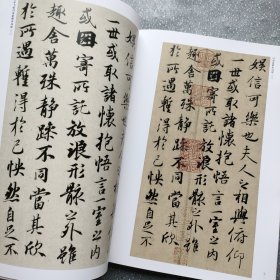 娛信可樂也夫人之相與俯仰
一世或取諸懷抱悟言一室之內
或因寄所託放浪形骸之外雖
趣舍萬殊靜躁不同當其欣
於所遇暫得於己怏然自足不
一世或取諸懷抱悟言一室之內
或因寄所託放浪形骸之外雖
趣舍萬殊靜躁不同當其欣
於所遇暫得於己怏然自足不